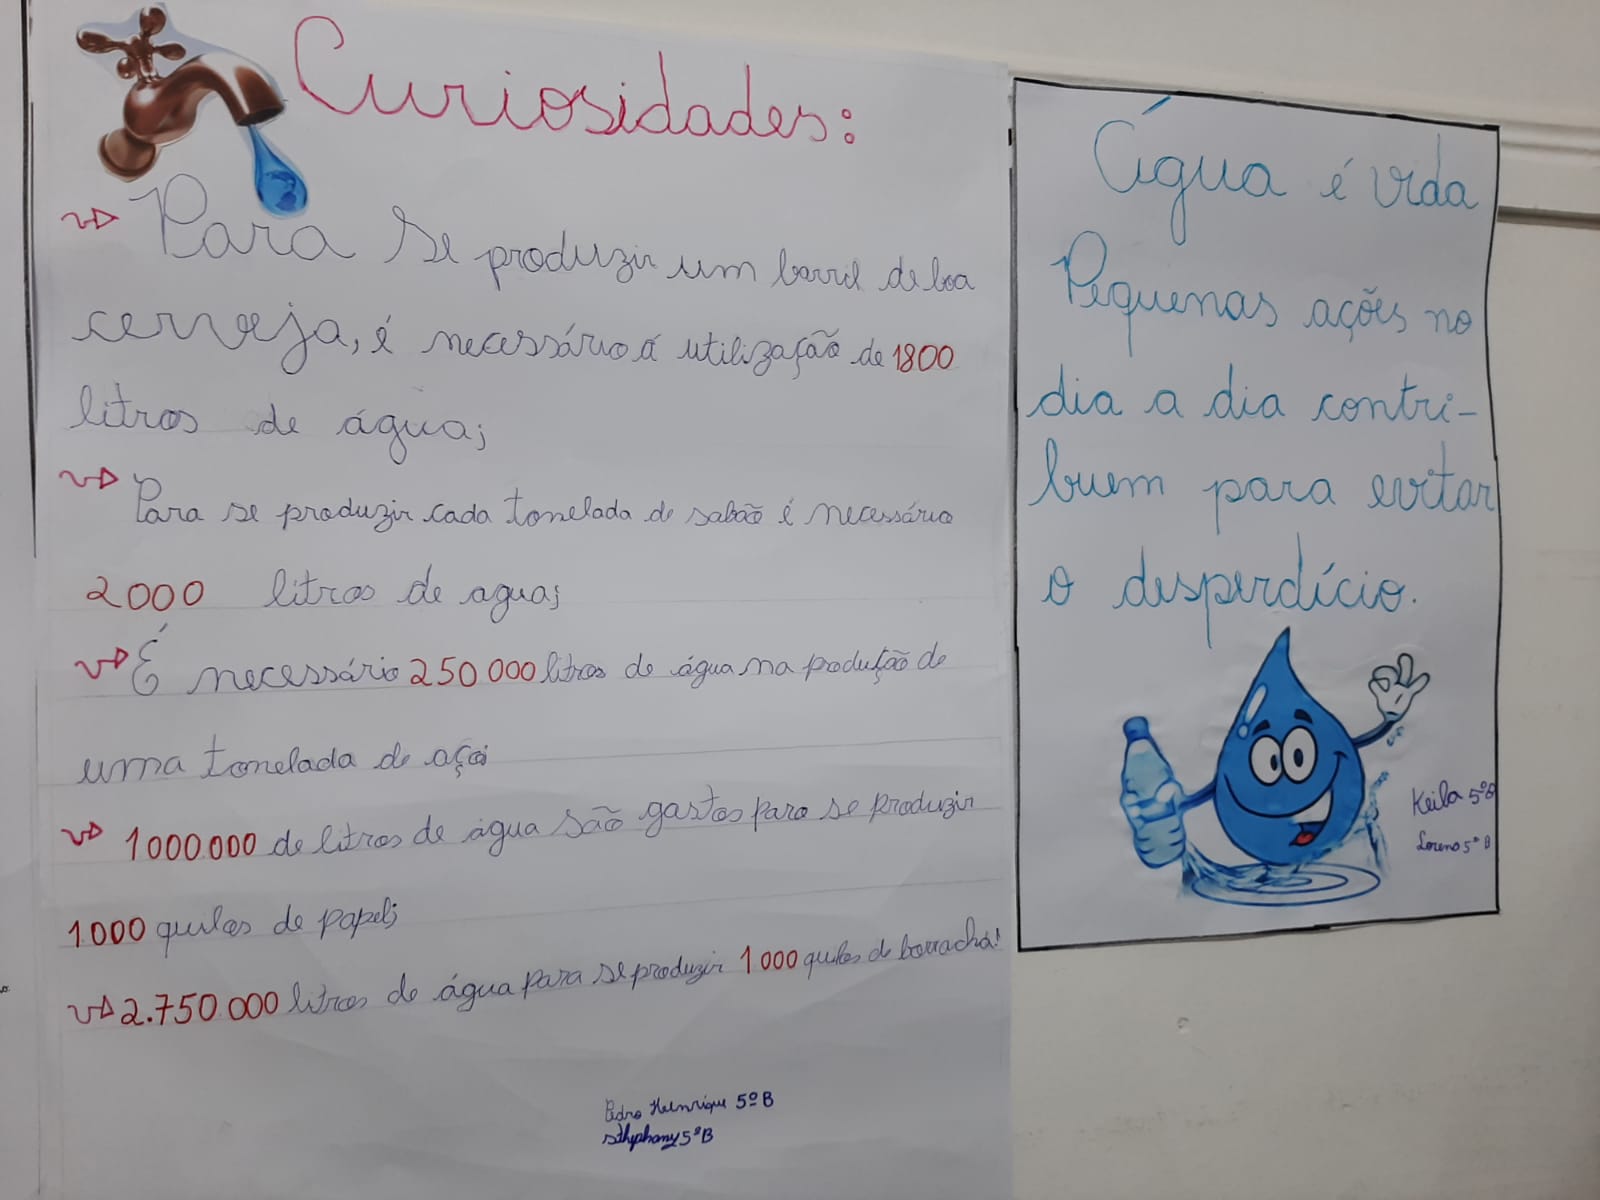 Curiosidades:
Para se produzir um barril de boa
cerveja, é necessário a utilização de 1800
litros de água;
Para se produzir cada tonelada de sabão é necessário
2000 litros de agua;
É necessário 250 000 litros de água na produção de
uma tonelada de aço;
1000.000 de litros de água são gastos para se produzir
1.000 quilos de papel;
2.750.000 litros de água para se produzir 1000 quilos de borracha!
Pedro Henrique 5º B
Sthephany 5º B
Água é vida
Pequenas ações no
dia a dia contri-
buem para evitar
o desperdício.
Keila 5º B
5º B